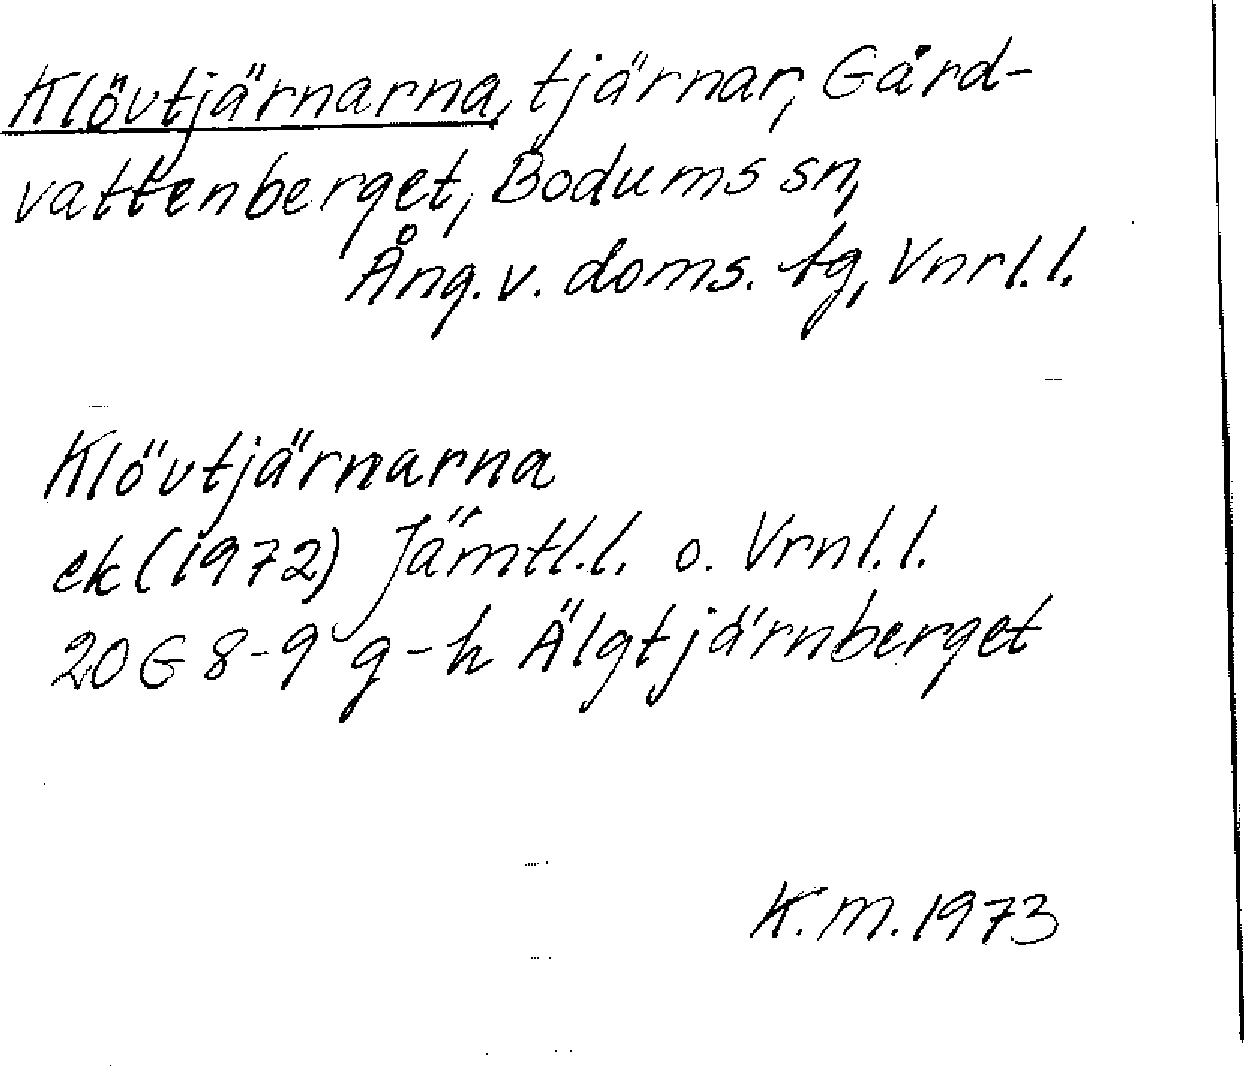 Klövtjärnarna, tjärnar, Gård-
vattenberget, Bodums sn,
Ång. v. doms. tg, Vnrl. l.
Klövtjärnarna
ek (1972) Jämtl. l. o. Vrnl. l.
20G 8-9 g-h Älgtjärnberget
K. M. 1973